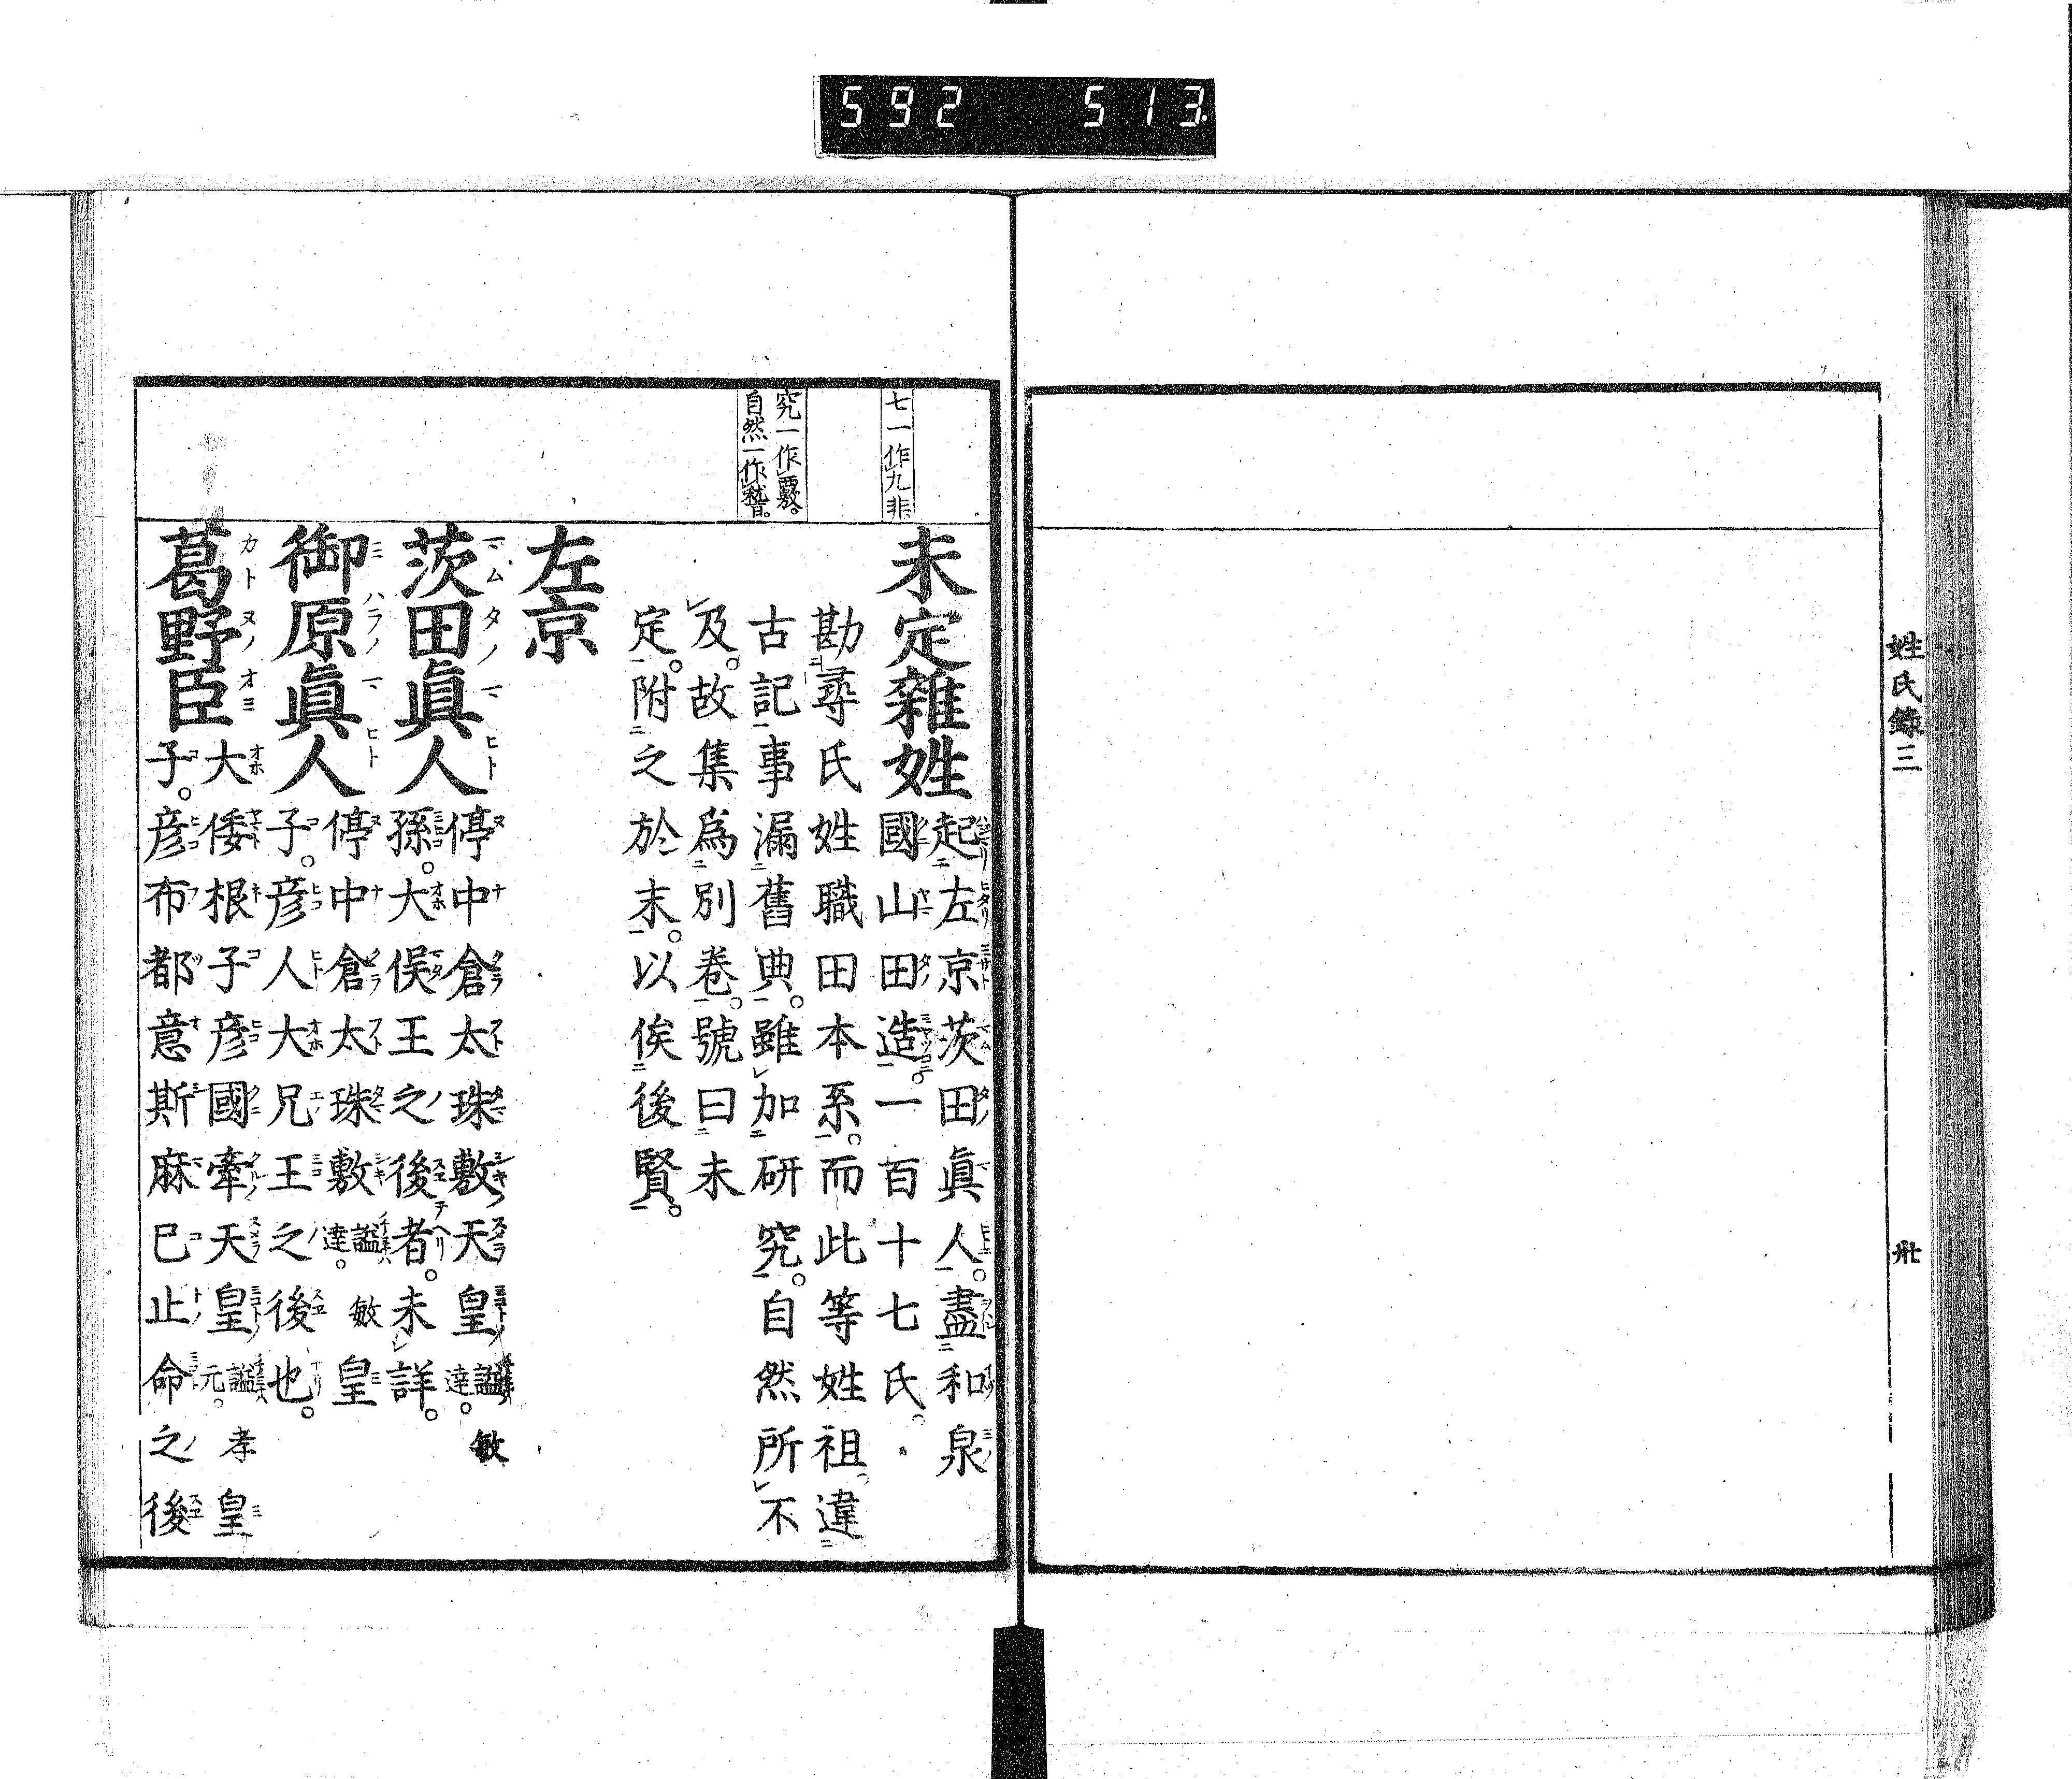 592 513
姓氏錄三
卅
七一作九非
究一作覈。
自然一作嵆。
未定雜姓
起左京茨田眞人。盡和泉
國山田造。一百十七氏。
勘尋氏姓職田本系。而此等姓祖。違
古記事漏舊典。雖加研究。自然所不
及。故集爲別卷。號曰未
定。附之於末。以俟後賢。
左京
茨田眞人
渟中倉太珠敷天皇諡敏達。
孫。大俣王之後者。未詳。
御原眞人
渟中倉太珠敷諡敏達。皇
子。彦人大兄王之後也。
葛野臣
大倭根子彦國牽天皇諡孝元。皇
子。彦布都意斯麻己止命之後